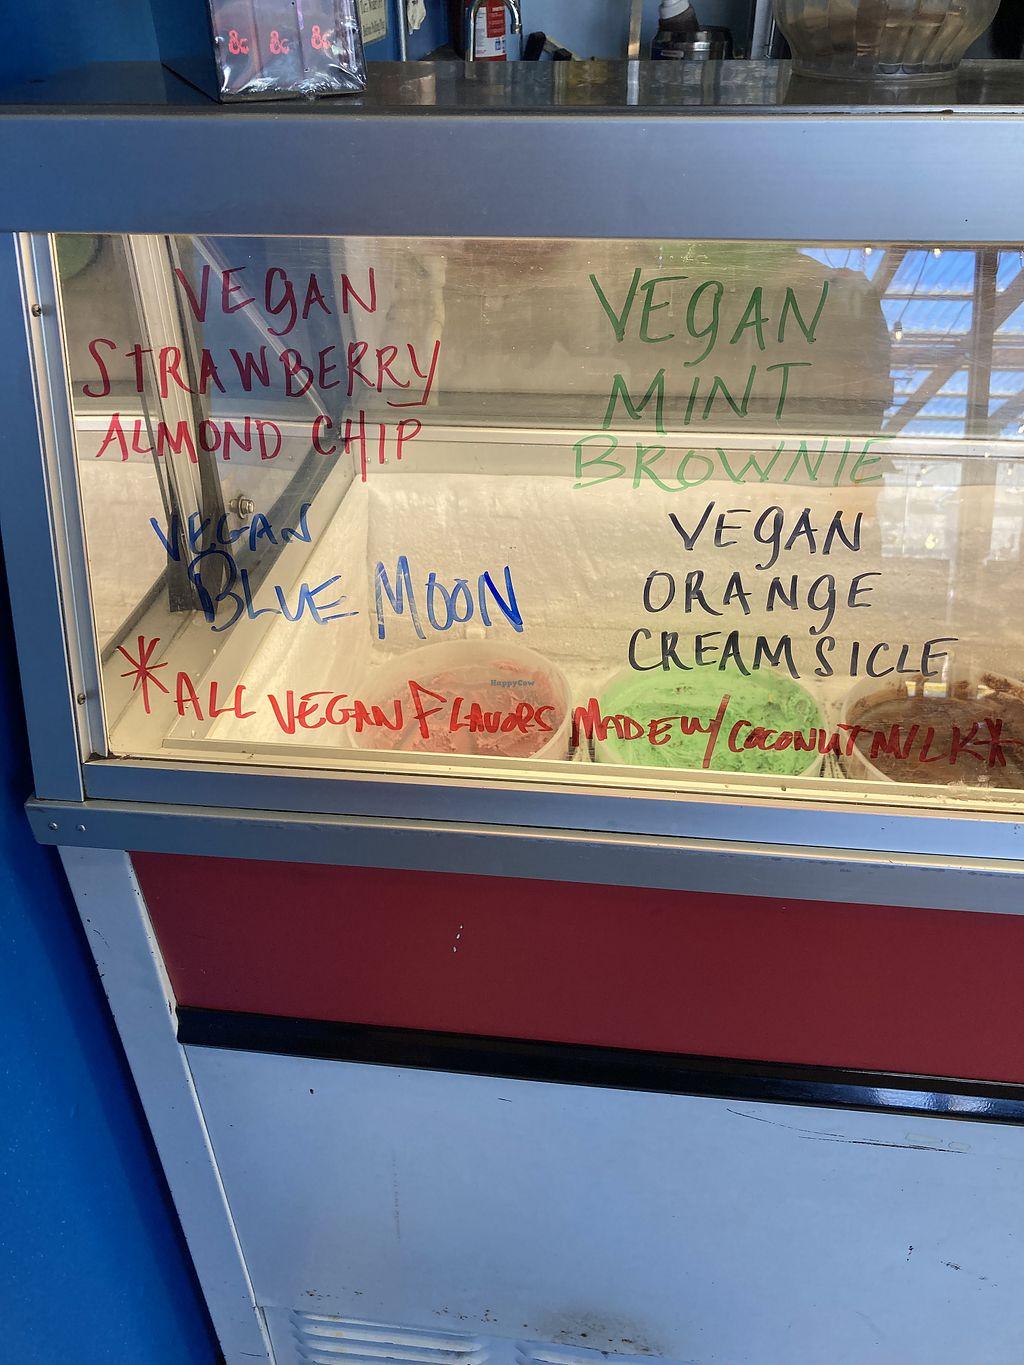 8c 8c 8c
VEGAN
STRAWBERRY
ALMOND CHIP
VEGAN
MINT
BROWNIE
VEGAN
BLUE MOON
VEGAN
ORANGE
CREAMSICLE
*ALL VEGAN FLAVORS MADE W/ COCONUT MILK*
HappyCow